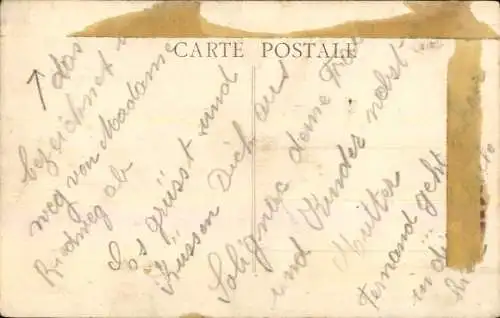 CARTE POSTALE
das
bezeichnet
weg von Madame
Rindweg ab
Es grüsst und
Küssen Dich aus
Solignac deine Frau
und Kinder nebst
Mutter
Fernand geht
in di